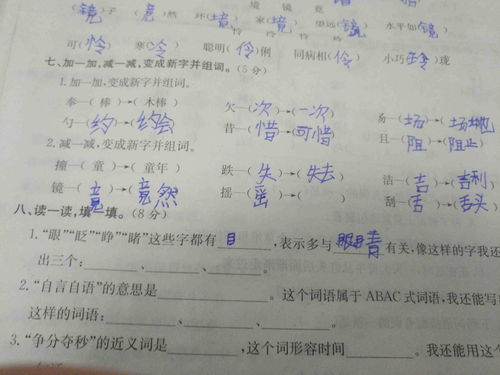 境 镜 竟
(镜)子 (竟)然 环(境) 家(境) 望远(镜) 水平如(镜)
怜 伶 怜 伶 玲
可(怜) 寒(冷) 聪明(伶)俐 同病相(伶) 小巧(玲)珑
七、加一加,减一减,变成新字并组词。(5分)
1.加一加,变成新字并组词。
奉—(棒)→(木棒) 欠—(次)→(一次) 昜—(场)→(场地)
勺—(约)→(约会) 昔—(惜)→(可惜) 且—(阻)→(阻止)
2.减一减,变成新字并组词。
撞—(童)→(童年) 跌—(失)→(失去) 洁—(吉)→(吉利)
镜—(竟)→(竟然) 摇—(䍃)→( ) 刮—(舌)→(舌头)
八、读一读,填一填。(8分)
1.“眼”“眨”“睁”“睹”这些字都有目,表示多与眼睛有关,像这样的字我还
出三个:______、______、______。
2.“自言自语”的意思是______。这个词语属于ABAC式词语,我还能写
这样的词语:______、______、______。
3.“争分夺秒”的近义词是______,这个词形容时间______。我还能用这个